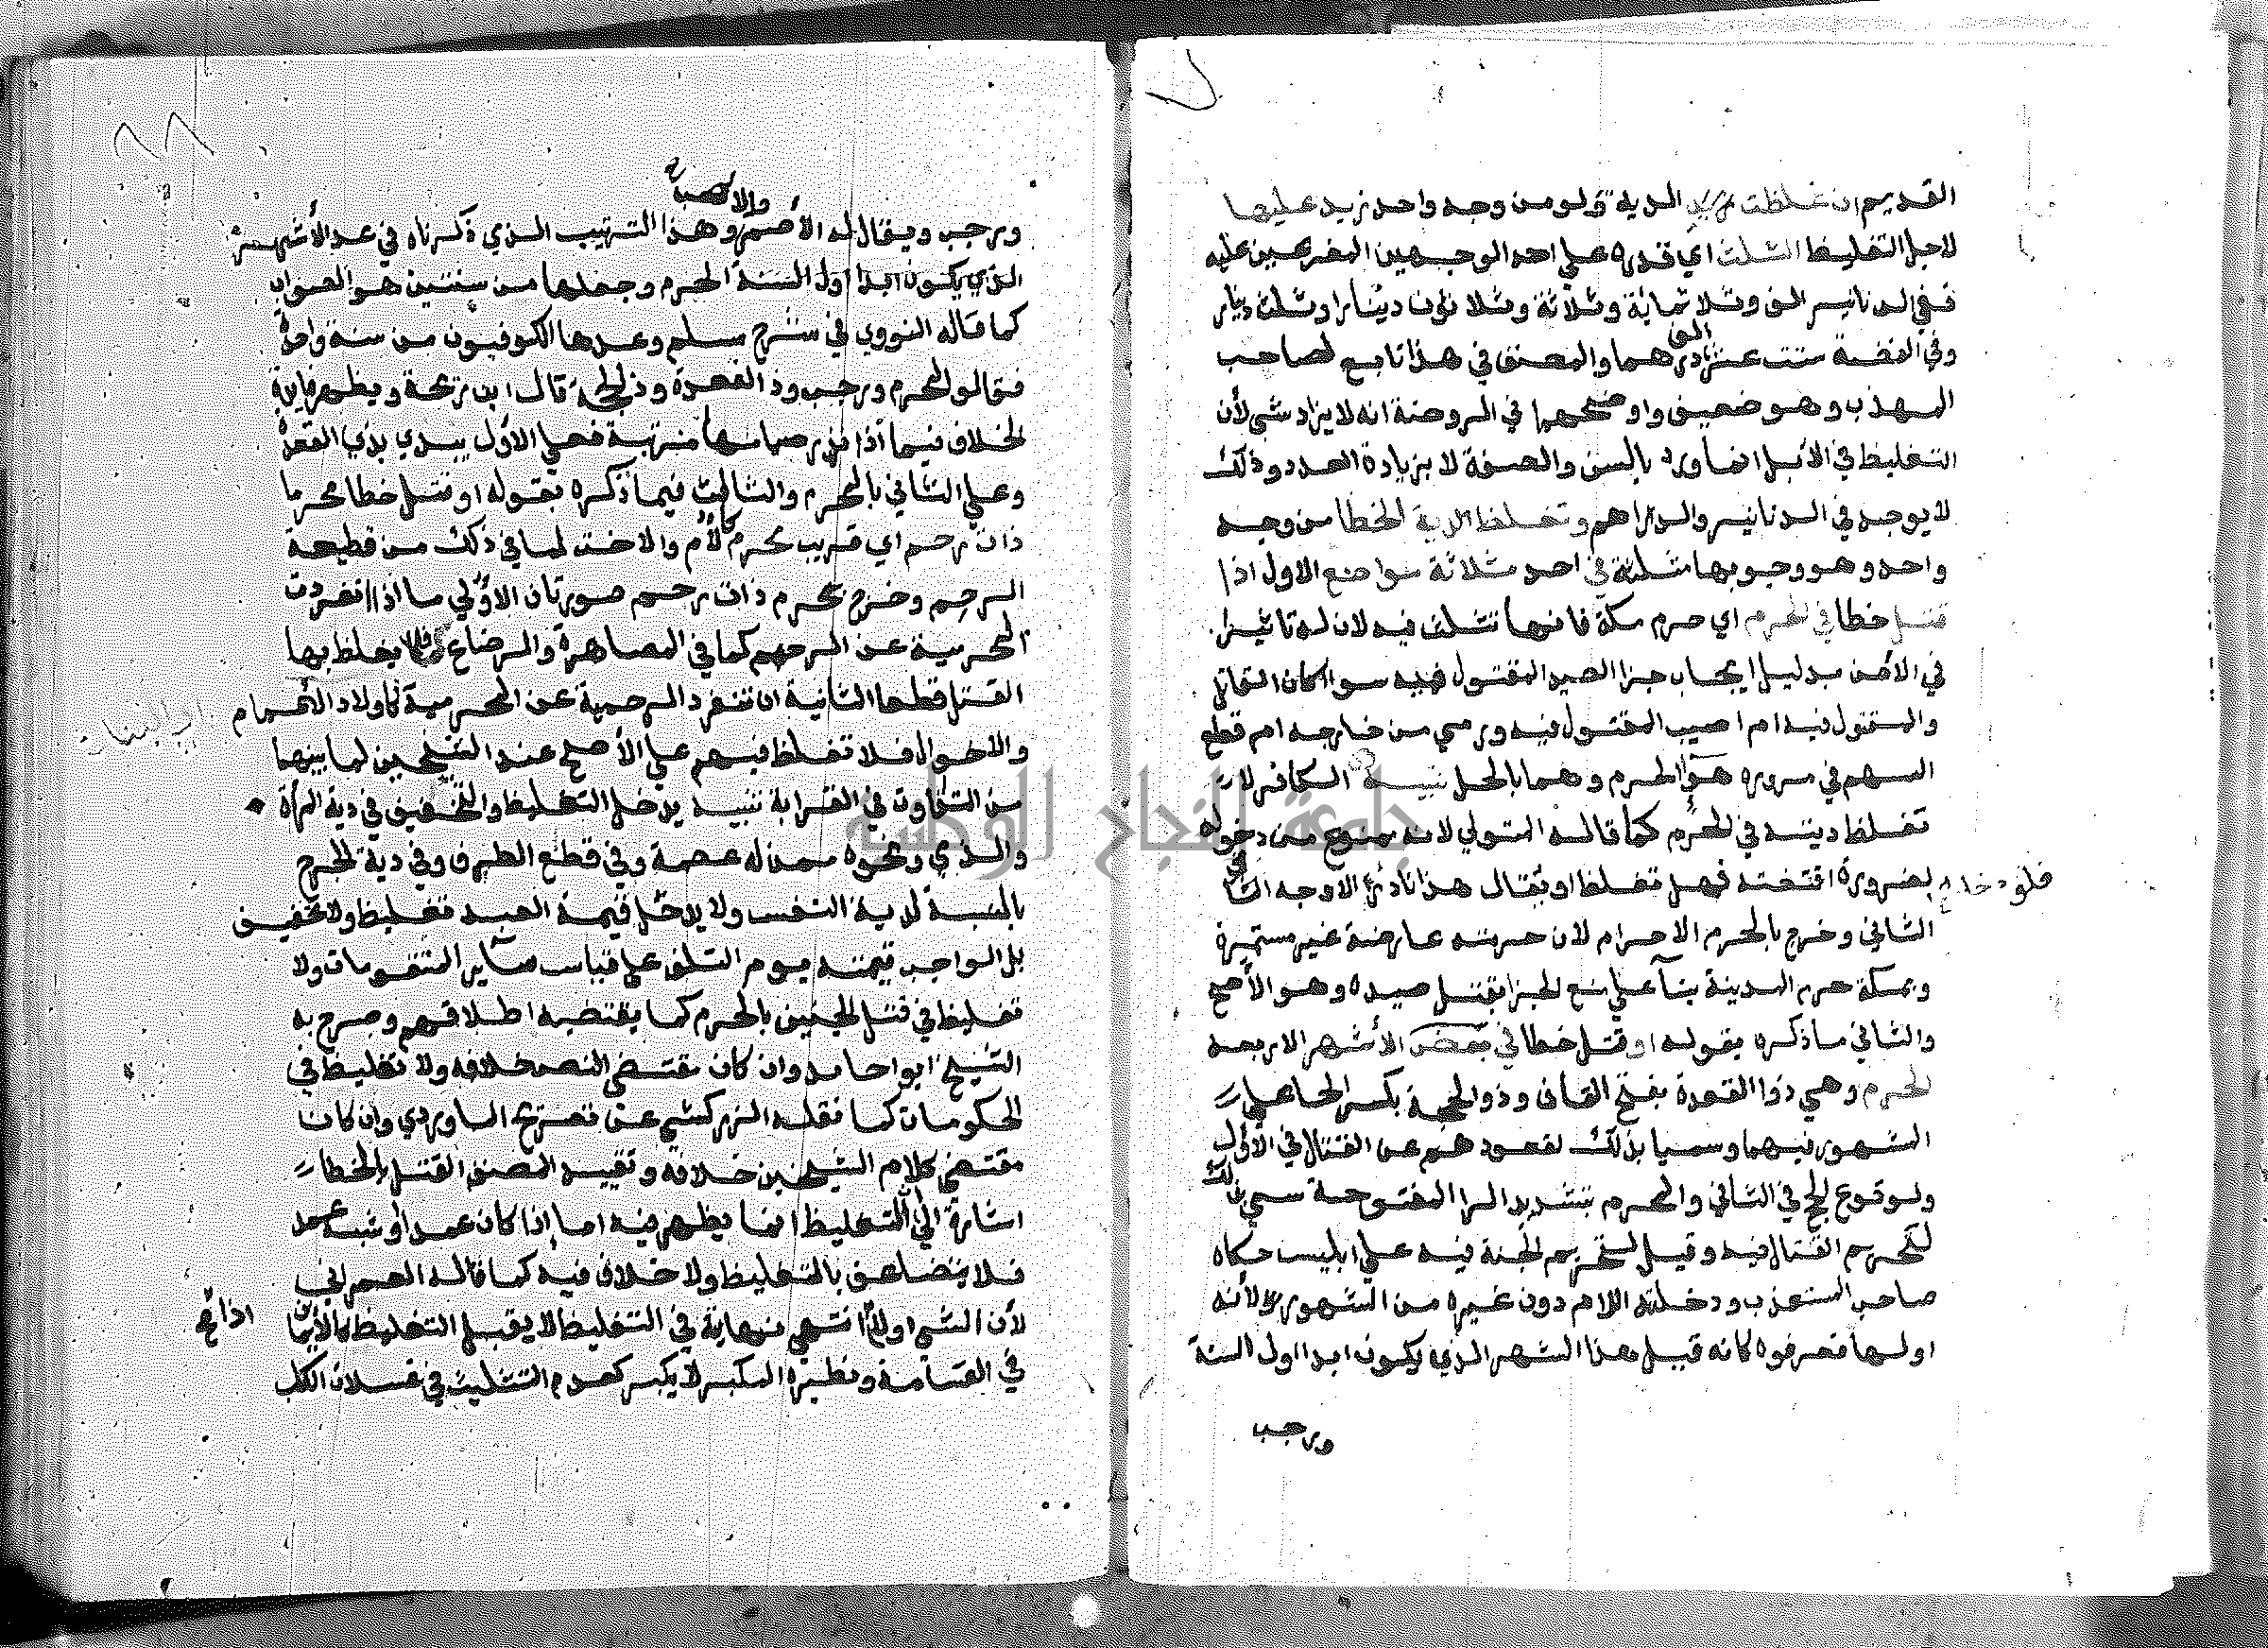 القديم ان غلظت الدية ولو من وجه واحد زيد عليها
لاجل التغليظ الثلث اي قدره علي احد الوجهين المفرعين عليه
ففي الدنانير الف وثلاثمائة وثلاثة وثلاثون دينارا وثلث دينار
وفي الفضة ستت عشر الف درهما والمصنف في هذا تابع لصاحب
المهذب وهو ضعيف واو صحهما في الروضة انه لا يزاد شي لأن
التغليظ في الأبل انما ورد بالسن والصفة لا بزيادة العدد وذلك
لا يوجد في الدنانير والدراهم وتغلظ الدية الخطا من وجه
واحد وهو وجوبها مثلثة في احد ثلاثة مواضع الاول اذا
قتل خطا في الحرم اي حرم مكة فانها تثلث فيه لان له تاثيرا
في الأمن بدليل ايجاب جزا الصيد المقتول فيه سوا كان القاتل
والمقتول فيه ام اصيب المقتول فيه ورمي من خارجه ام قطع
السهم في مروره هوا الحرم وهما بالحل تنبيه الكافر لا
تغلظ ديته في الحرم كما قاله المتولي لانه ممنوع من دخوله
فلو دخله
لضرورة اقتضته فهل تغلظ او يقال هذا نادر الاوجه الثاني
الثاني وخرج بالحرم الاحرام لان حرمته عارضة غير مستمرة
وبمكة حرم المدينة بنآ علي منع الجزا بقتل صيده وهو الأصح
والثاني ما ذكره بقوله او قتل خطا في بعض الأشهر الاربعة
الحرم وهي ذوا القعدة بفتح القاف وذو الحجة بكسر الحا علي
المشهور فيهما وسميا بذلك لقعودهم عن القتال في الأول
ولوقوع الحج في الثاني والمحرم بتشديد الرا المفتوحة سمي بذلك
لتحريم القتال فيه وقيل لتحريم الجنة فيه علي ابليس حكاه
صاحب المستعذب ودخلته اللام دون غيره من الشهور لأنه
اولها فعرفوه كانه قيل هذا الشهر الذي يكون ابدا اول السنة
ورجب
والاصب
ورجب ويقال له الأصم وهذا الترتيب الذي ذكرناه في عد الأشهر
الذي يكون ابدا اول السنة الحرم وجعلها من سنتين هو الصواب
كما قاله النووي في شرح مسلم وعدها الكوفيون من سنة واحدة
فقالوا المحرم ورجب وذ القعدة وذ الحجة قال ابن دحية ويظهر فايدة
الخلاف فيما اذا نذر صيامها مرتبة فعلي الاول يبدي بذي القعدة
وعلي الثاني بالمحرم والثالث فيما ذكره بقوله او قتل خطا محرما
ذات رحم اي قريب محرم كالأم والاخت لما في ذلك من قطيعة
الرحم وخرج بمحرم ذات رحم صورتان الاولي ما اذا انفردت
المحرمية عن الرحم كما في المصاهرة والرضاع فلا يغلظ بها
القتل قطعا الثانية ان تنفرد الرحمية عن المحرمية كاولاد الاعمام
والاخوال فلا تغلظ فيهم علي الأصح عند الشيخين لما بينهما
من التفاوت في القرابة تنبيه يدخل التغليظ والتخفيف في دية المرأة
والذمي ونحوه ممن له عصمة وفي قطع الطرف وفي دية الجرح
بالنسبة لدية النفس ولا يدخل قيمة العبد تغليظ ولا تخفيف
بل الواجب قيمته يوم التلف علي قياس سآير المتقومات ولا
تغليظ في قتل الجنين بالحرم كما يقتضيه اطلاقهم وصرح به
الشيخ ابوا حامد وان كان مقتضي النص خلافه ولا تغليظ في
الحكومات كما نقله الزركشي عن تصريح الماوردي وان كان
مقتضي كلام الشيخين خلافه وتقييد المصنف القتل بالخطا
اشارة الي التغليظ انما يظهر فيه اما اذا كان عمدا او شبه عمد
فلا يتضاعف بالتغليظ ولا خلاف فيه كما قاله العمراني
لأن الشي اذا انتهي نهاية في التغليظ لا يقبل التغليظ كالأيمان
في القسامة ونظيره المكبر لا يكبر كعدم التثليث في غسلات الكلب